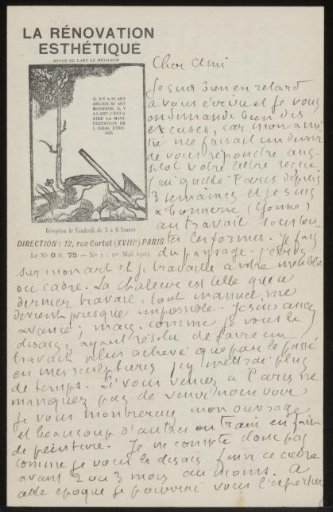 LA RÉNOVATION
ESTHÉTIQUE
REVUE DE L'ART LE MEILLEUR
IL N'Y A NI ART
ANCIEN NI ART
MODERNE, IL Y
A L'ART, C'EST A
DIRE LA MANI-
FESTATION DE
L'IDÉAL ÉTER
NEL
Réception le Vendredi de 2 à 6 heures
DIRECTION : 12, rue Cortot (XVIIIe) PARIS
Le No 0 fr. 75 — No 1 : 1er Mai 1905
Cher ami
Je suis bien en retard
à vous écrire et je vous
en demande bien des
excuses, car mon ami
tié me faisait un devoir
de vous répondre aus-
sitôt votre lettre reçue.
J'ai quitté Paris depuis
3 semaines et je suis
à Tonnerre (Yonne)
au travail
Je fais
du paysage
sur mon art et je travaille à votre
ou cadre. La chaleur est telle que ce
dernier travail, tout manuel, me
devient presque impossible. Je suis assez
avancé, mais, comme je vous le
disais, ayant résolu de faire un
travail plus achevé que par le passé
en mes sculptures, j'y mettrai plus
de temps. Si vous venez à Paris ne
manquez pas de venir nous voir,
je vous montrerai mon ouvrage
et beaucoup d'autres en train en fait
de peinture. Je ne compte donc pas
comme je vous le disais finir ce cadre
avant 2 ou 3 mois au moins. A
cette époque je pourrai vous l'expédier